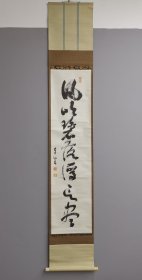 風吹碧落浮雲盡